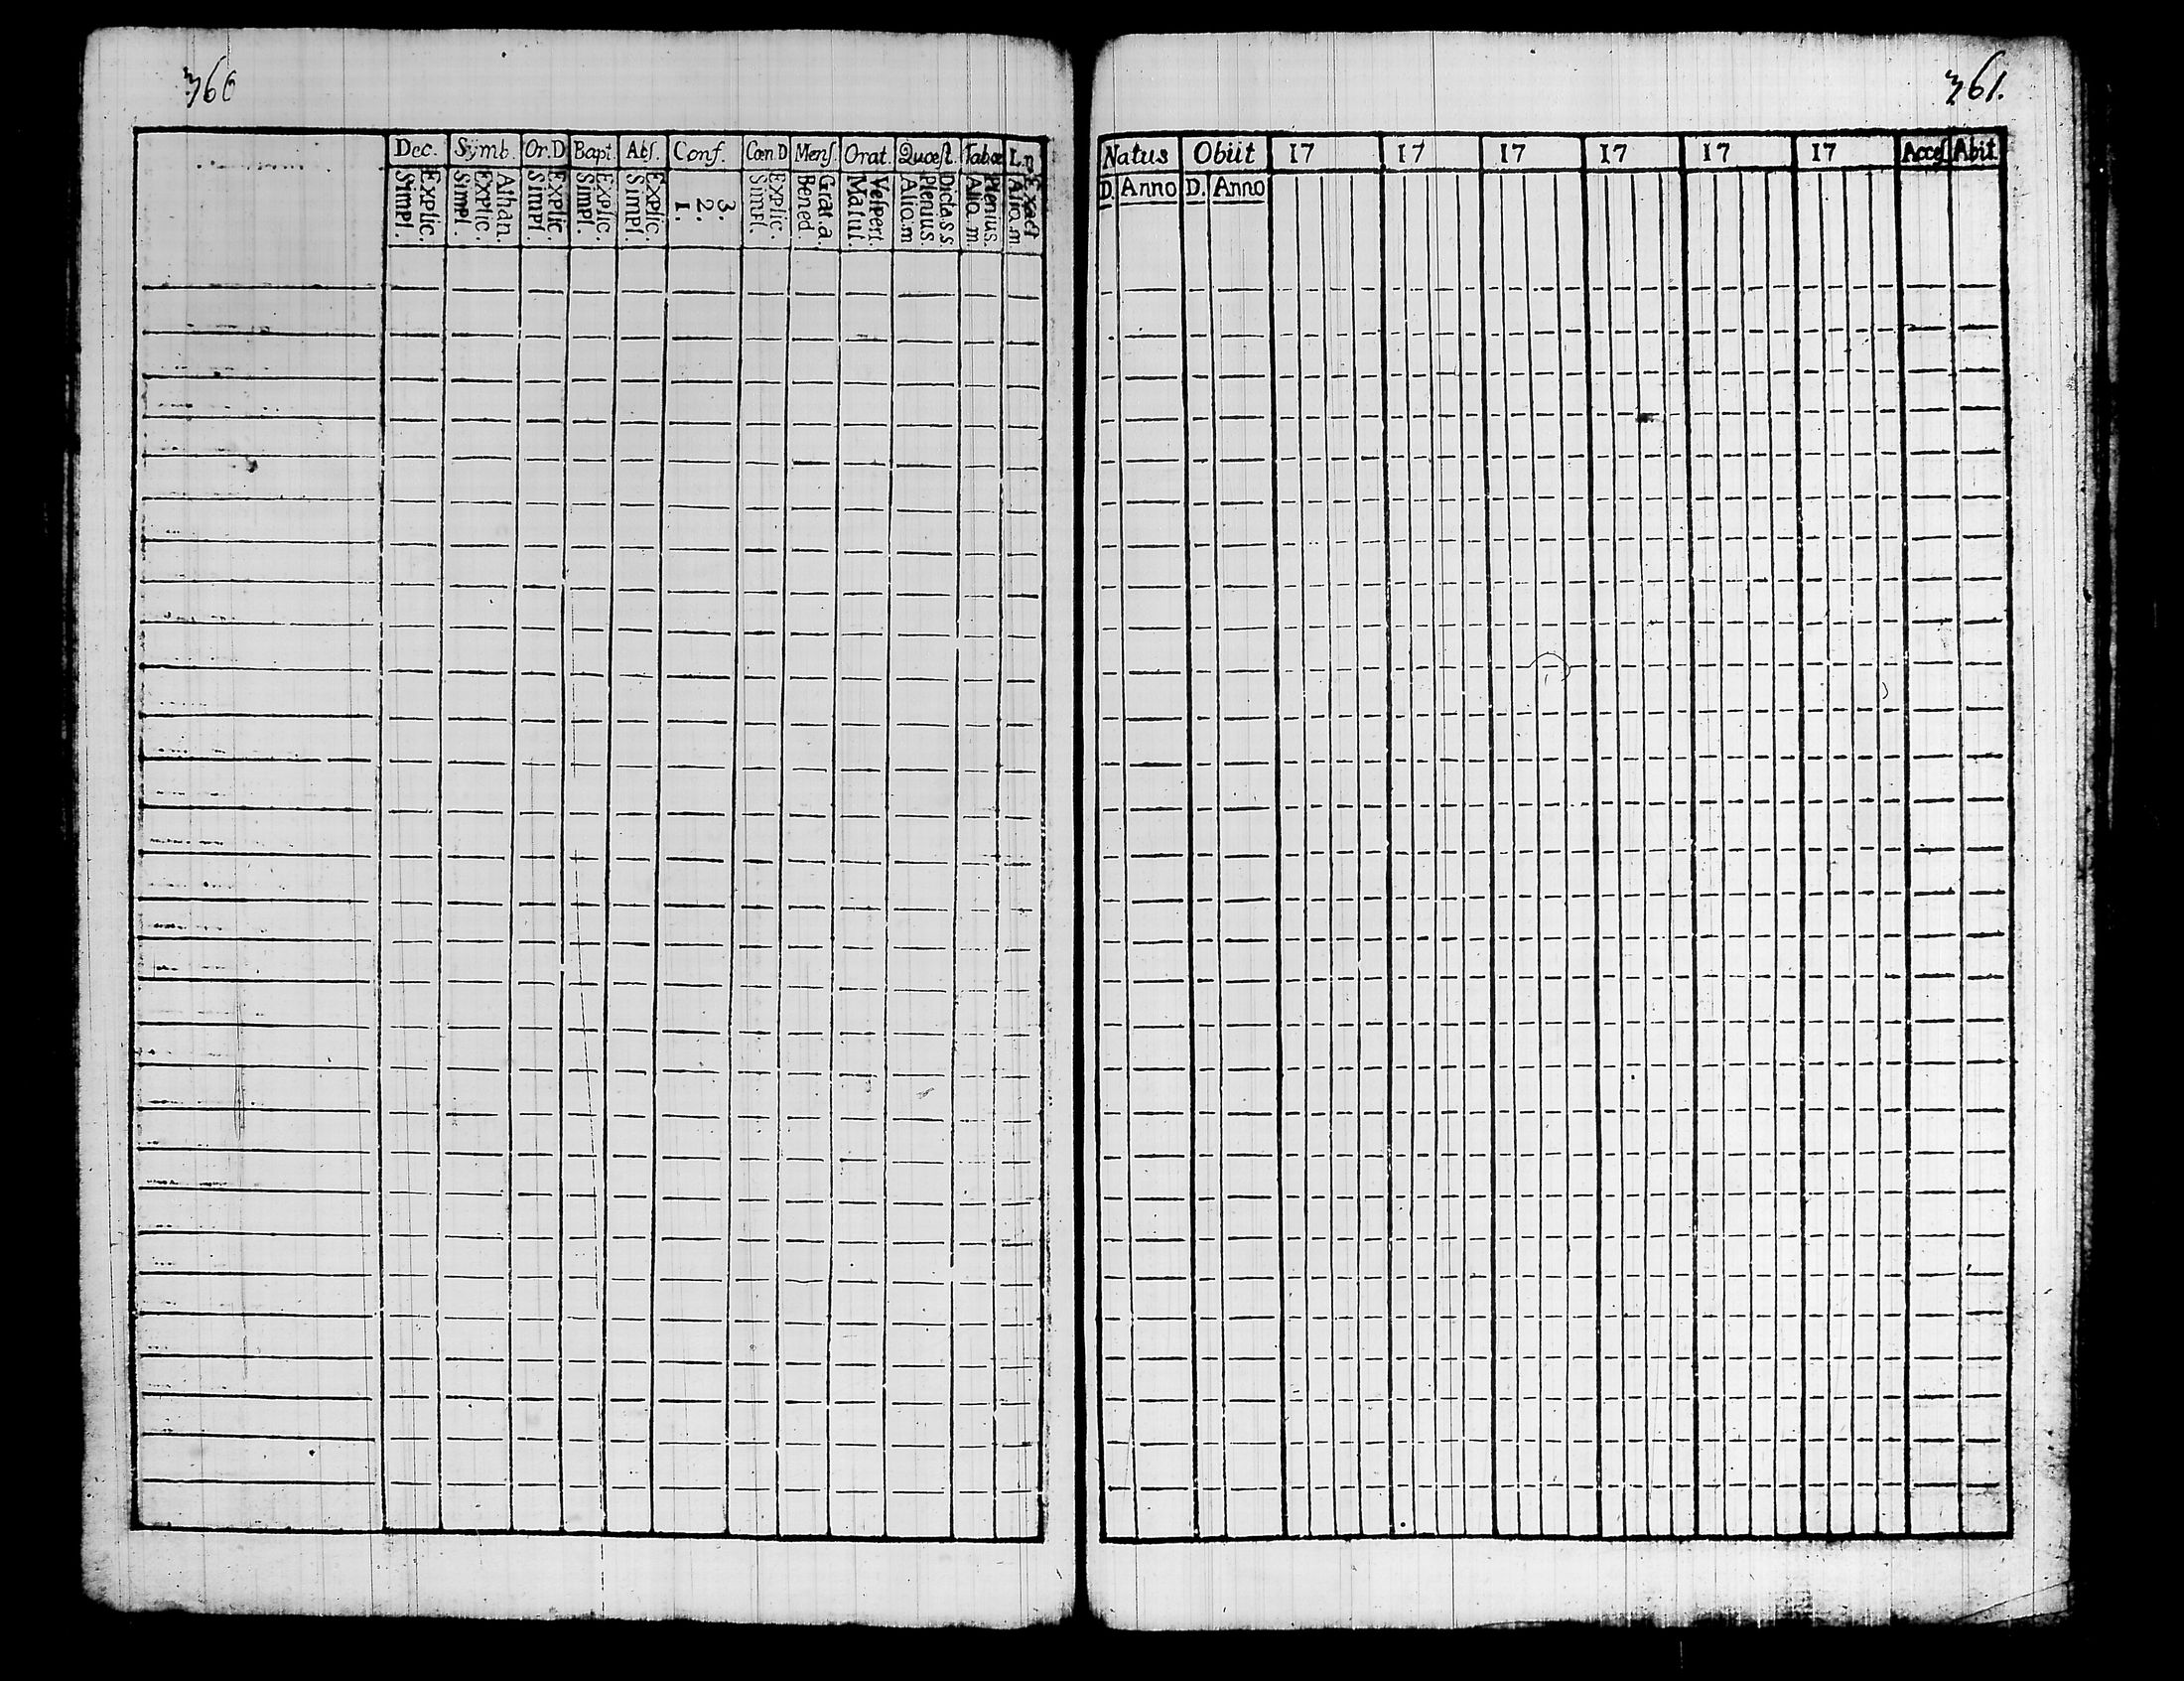 360
Dec. Symb. Or.D Bapt. Abſ. Conf. Cœn.D Menſ. Orat. Quæſt. Tabæ L.n
Explic. Simpl. Athan. Explic. Simpl. Explic. Simpl. Explic. Simpl. Explic. Simpl. 3. 2. 1. Explic. Simpl. Grat.a. Bened. Veſpert. Matut. Dicta.s.s. Plenius. Alio.m Plenius. Alio.m. Exact Alio.m.
361.
Natus Obiit 17 17 17 17 17 17 Acceſ Abit
D. Anno D. Anno